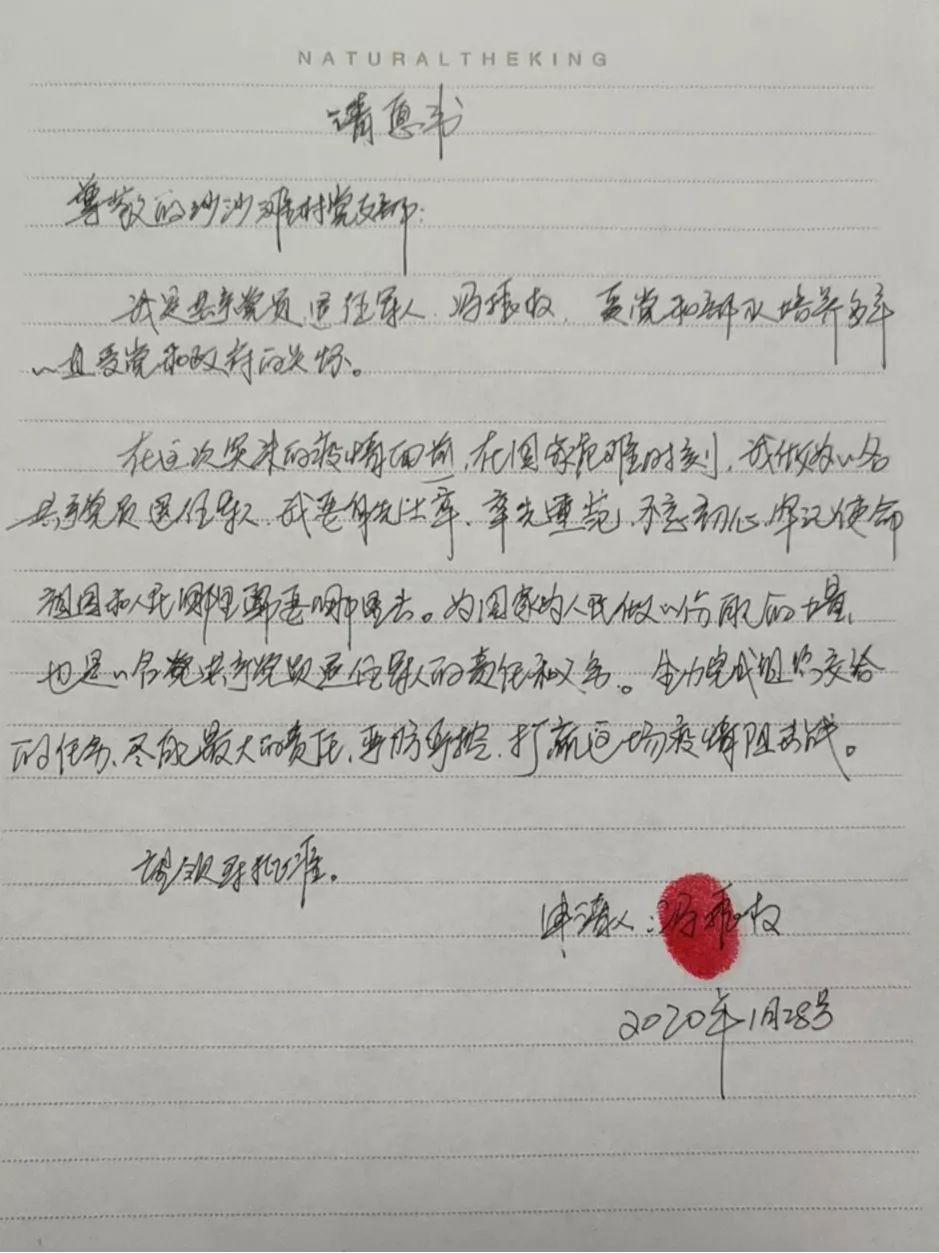 NATURALTHEKING
请愿书
尊敬的沙沙滩村党支部:
我是共产党员退伍军人 冯振权, 受党和部队培养多年
一直受党和政府的关怀。
在这次突来的疫情面前,在国家危难时刻,我做为一名
共产党员退伍军人 我要争先 率,率先垂范,不忘初心,牢记使命
祖国和人民哪里需要哪里去。为国家为人民做一份 的力量,
也是一名 共产党员退伍军人的责任和义务。全力完成组织交给
的任务、尽 最大的责任,严防 控,打赢这场疫情阻击战。
望领导批准。
申请人:冯振权
2020年1月28号